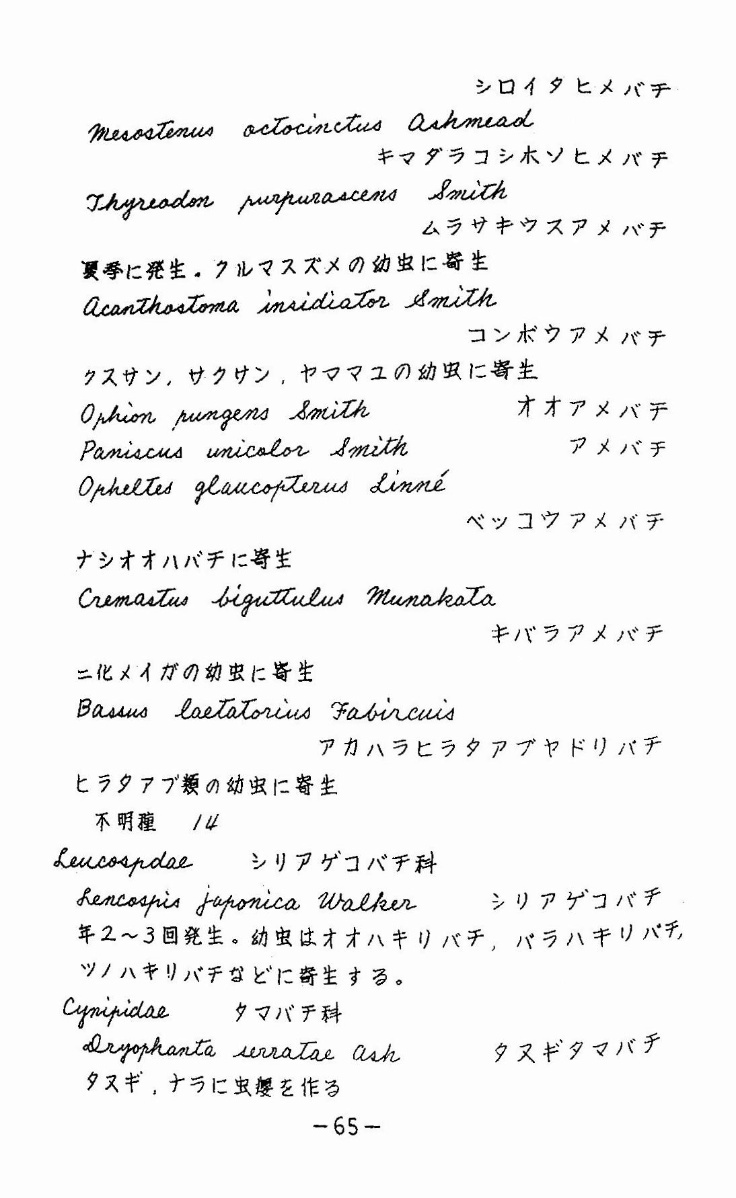 シロイタヒメバチ
Mesostenus octocinctus Ashmead
キマダラコシホソヒメバチ
Thyreodon purpurascens Smith
ムラサキウスアメバチ
夏季に発生。クルマスズメの幼虫に寄生
Acanthostoma insidiator Smith
コンボウアメバチ
クスサン，サクサン，ヤママユの幼虫に寄生
Ophion pungens Smith オオアメバチ
Paniscus unicolor Smith アメバチ
Opheltes glaucopterus Linné
ベッコウアメバチ
ナシオオハバチに寄生
Cremastus biguttulus Munakata
キバラアメバチ
ニ化メイガの幼虫に寄生
Bassus laetatorius Fabircuis
アカハラヒラタアブヤドリバチ
ヒラタアブ類の幼虫に寄生
不明種 14
Leucospdae シリアゲコバチ科
Lencospis japonica Walker シリアゲコバチ
年2～3回発生。幼虫はオオハキリバチ，バラハキリバチ，
ツノハキリバチなどに寄生する。
Cynipidae タマバチ科
Dryophanta serratae Ash クヌギタマバチ
クヌギ，ナラに虫癭を作る
－65－